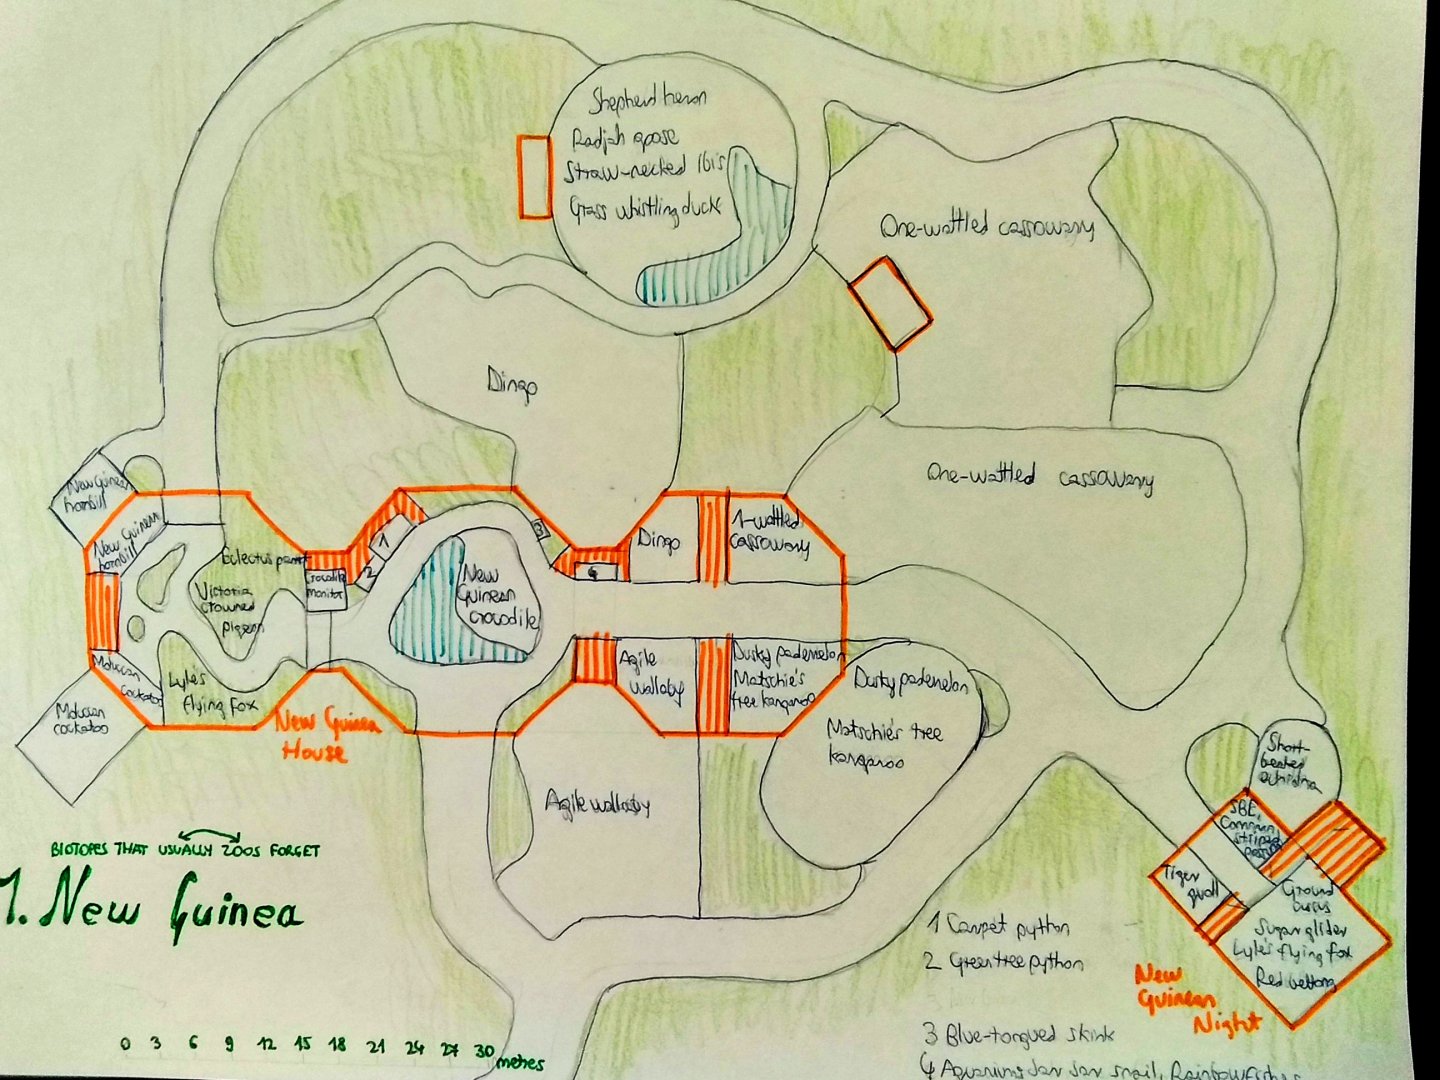 Shepherd heron
Radjah goose
Straw-necked ibis
Grass whistling duck
One-wattled cassowary
Dingo
One-wattled cassowary
New Guinean
hornbill
New Guinean
hornbill
Eclectus parrot
Victoria
crowned
pigeon
Crocodile
monitor
1
2
3
4
New
Guinean
crocodile
Dingo
1-wattled
cassowary
Moluccan
cockatoo
Moluccan
cockatoo
Lyle's
flying fox
New Guinea
House
Agile
wallaby
Dusky pademelon
Matschie's
tree kangaroo
Dusky pademelon
Matschie's tree
kangaroo
Agile wallaby
Short-
beaked
echidna
SBE,
Common
striped
possum
Tiger
quoll
Ground
cuscus
Sugar glider
Lyle's flying fox
Red bettong
New
Guinean
Night
BIOTOPES THAT USUALLY ZOOS FORGET
1. New Guinea
1 Carpet python
2 Green tree python
3 Blue-tongued skink
4 Aquariums Jar Jar snail, Rainbowfishes
0 3 6 9 12 15 18 21 24 27 30 metres